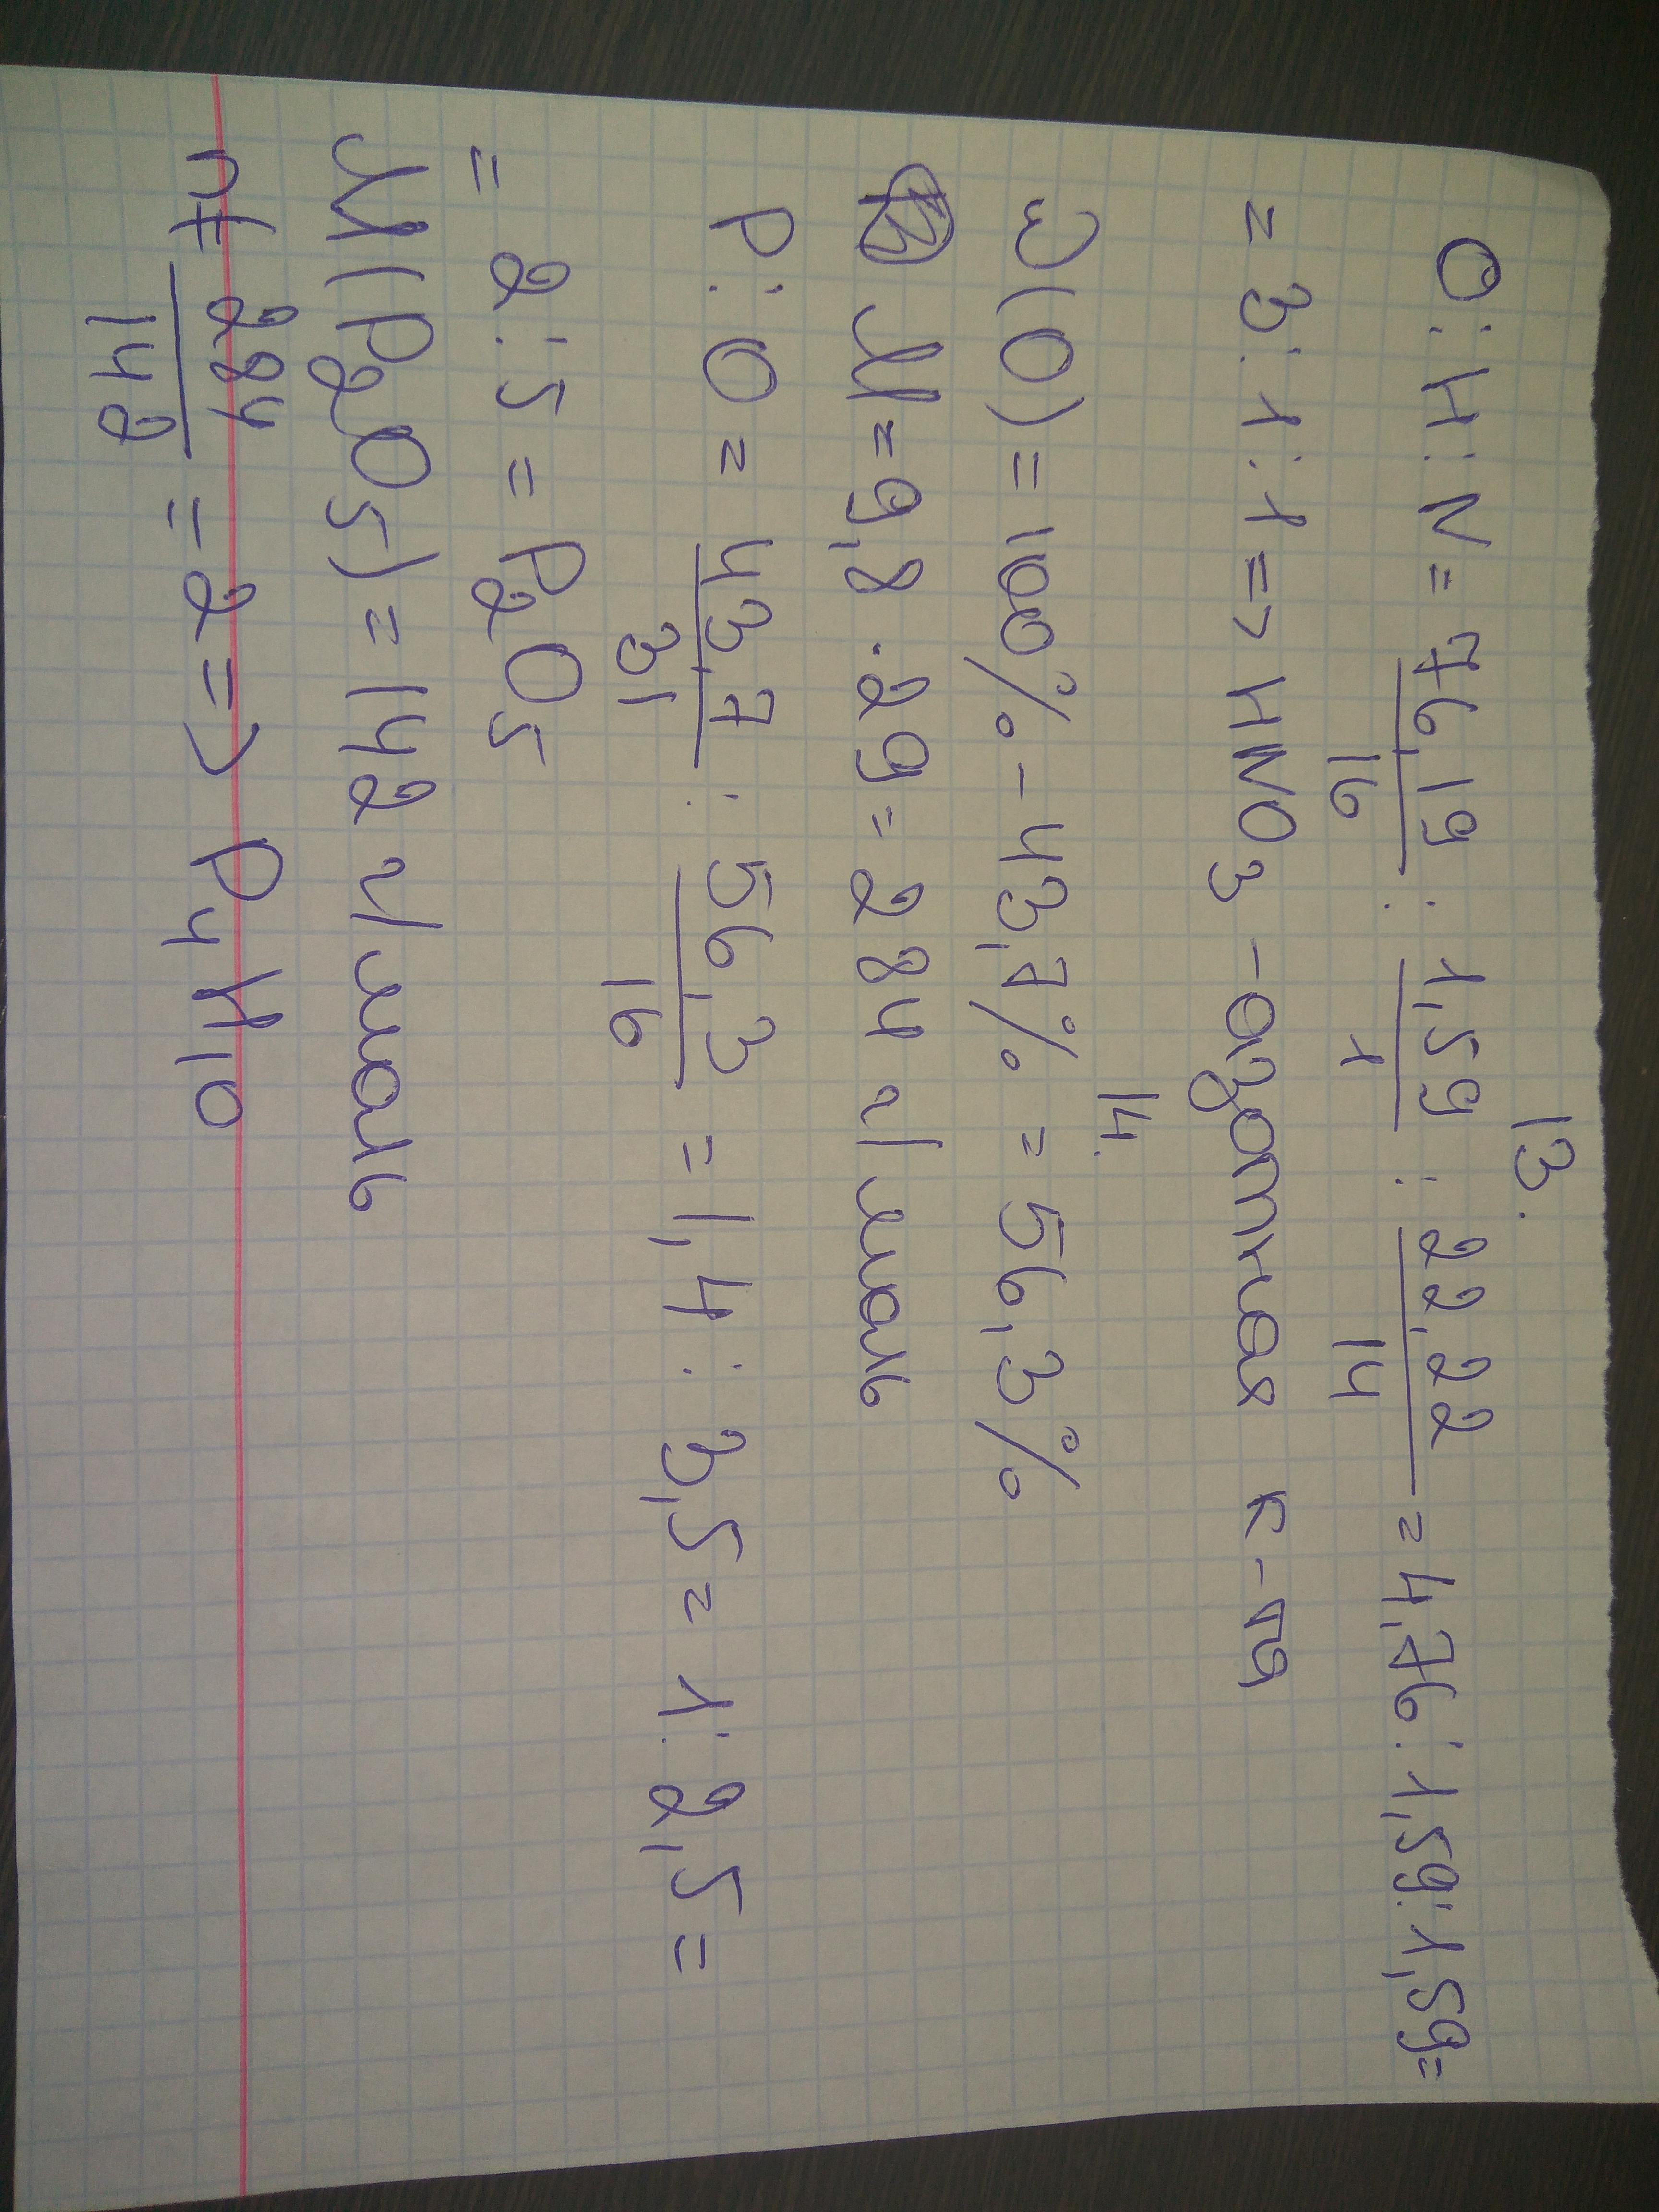 13.
O : H : N = 76,19/16 : 1,59/1 : 22,22/14 = 4,76 : 1,59 : 1,59 =
= 3 : 1 : 1 => HNO3 - азотная к-та
14.
ω(O) = 100% - 43,7% = 56,3%
M = 9,8 · 29 = 284 г/моль
P : O = 43,7/31 : 56,3/16 = 1,4 : 3,5 = 1 : 2,5 =
= 2 : 5 = P2O5
M(P2O5) = 142 г/моль
n = 284/142 = 2 => P4H10